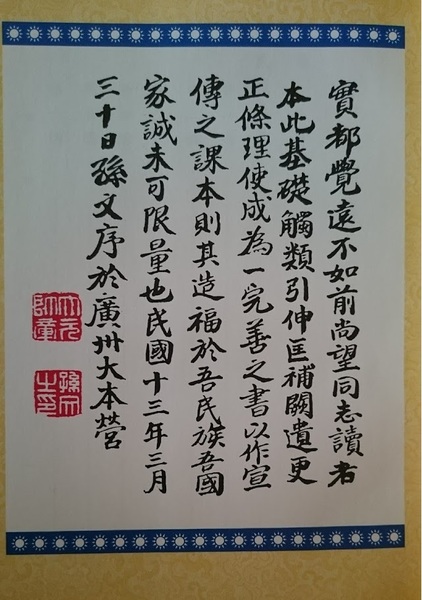 實都覺遠不如前尚望同志讀者
本此基礎觸類引伸匡補闕遺更
正條理使成為一完善之書以作宣
傳之課本則其造福於吾民族吾國
家誠未可限量也民國十三年三月
三十日孫文序於廣州大本營
大元
帥章
孫文
之印